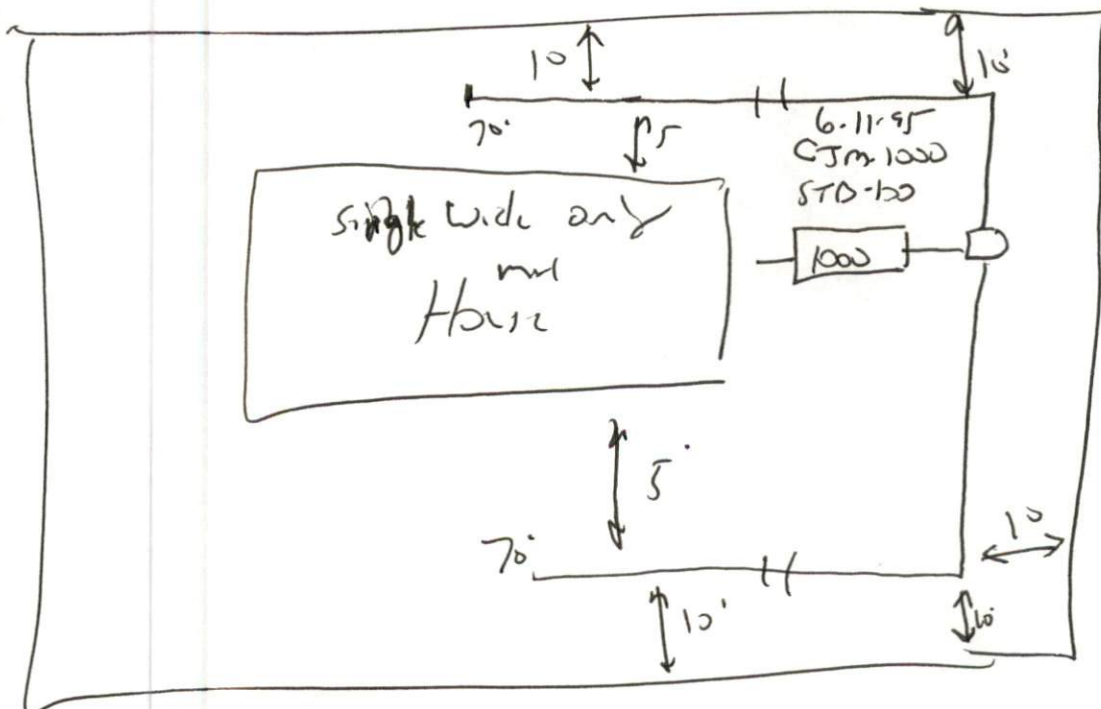 10
10'
70'
5
6-11-95
CJM-1000
STB-100
single wide only
House
1000
5'
70'
10
10'
10'